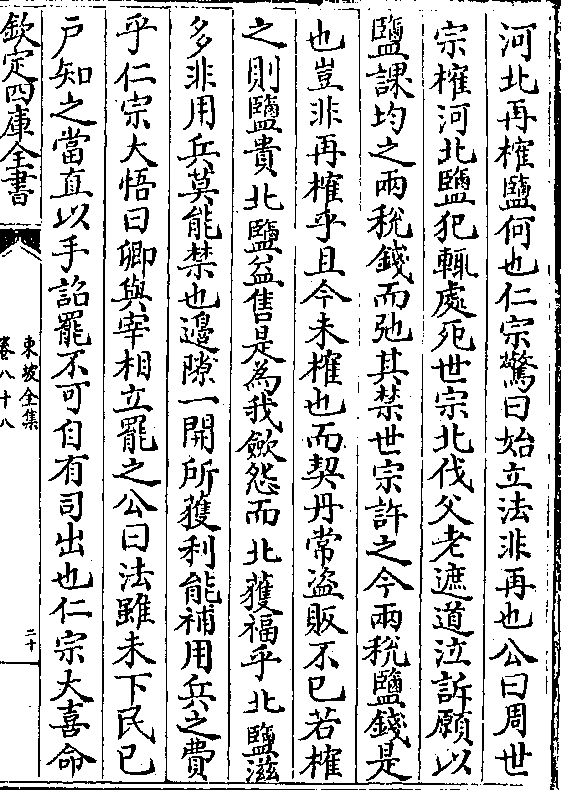 河北再㩁鹽何也仁宗驚曰始立法非再也公曰周世
宗㩁河北鹽犯輒處死世宗北伐父老遮道泣訴願以
鹽課均之兩稅錢而弛其禁世宗許之今兩稅鹽錢是
也豈非再㩁乎且今未㩁也而契丹常盗販不已若㩁
之則鹽貴北鹽益售是為我斂怨而北獲福乎北鹽滋
多非用兵莫能禁也邊隙一開所獲利能補用兵之費
乎仁宗大悟曰卿與宰相立罷之公曰法雖未下民已
户知之當直以手詔罷不可自有司出也仁宗大喜命
欽定四庫全書
東坡全集
卷八十八
二十